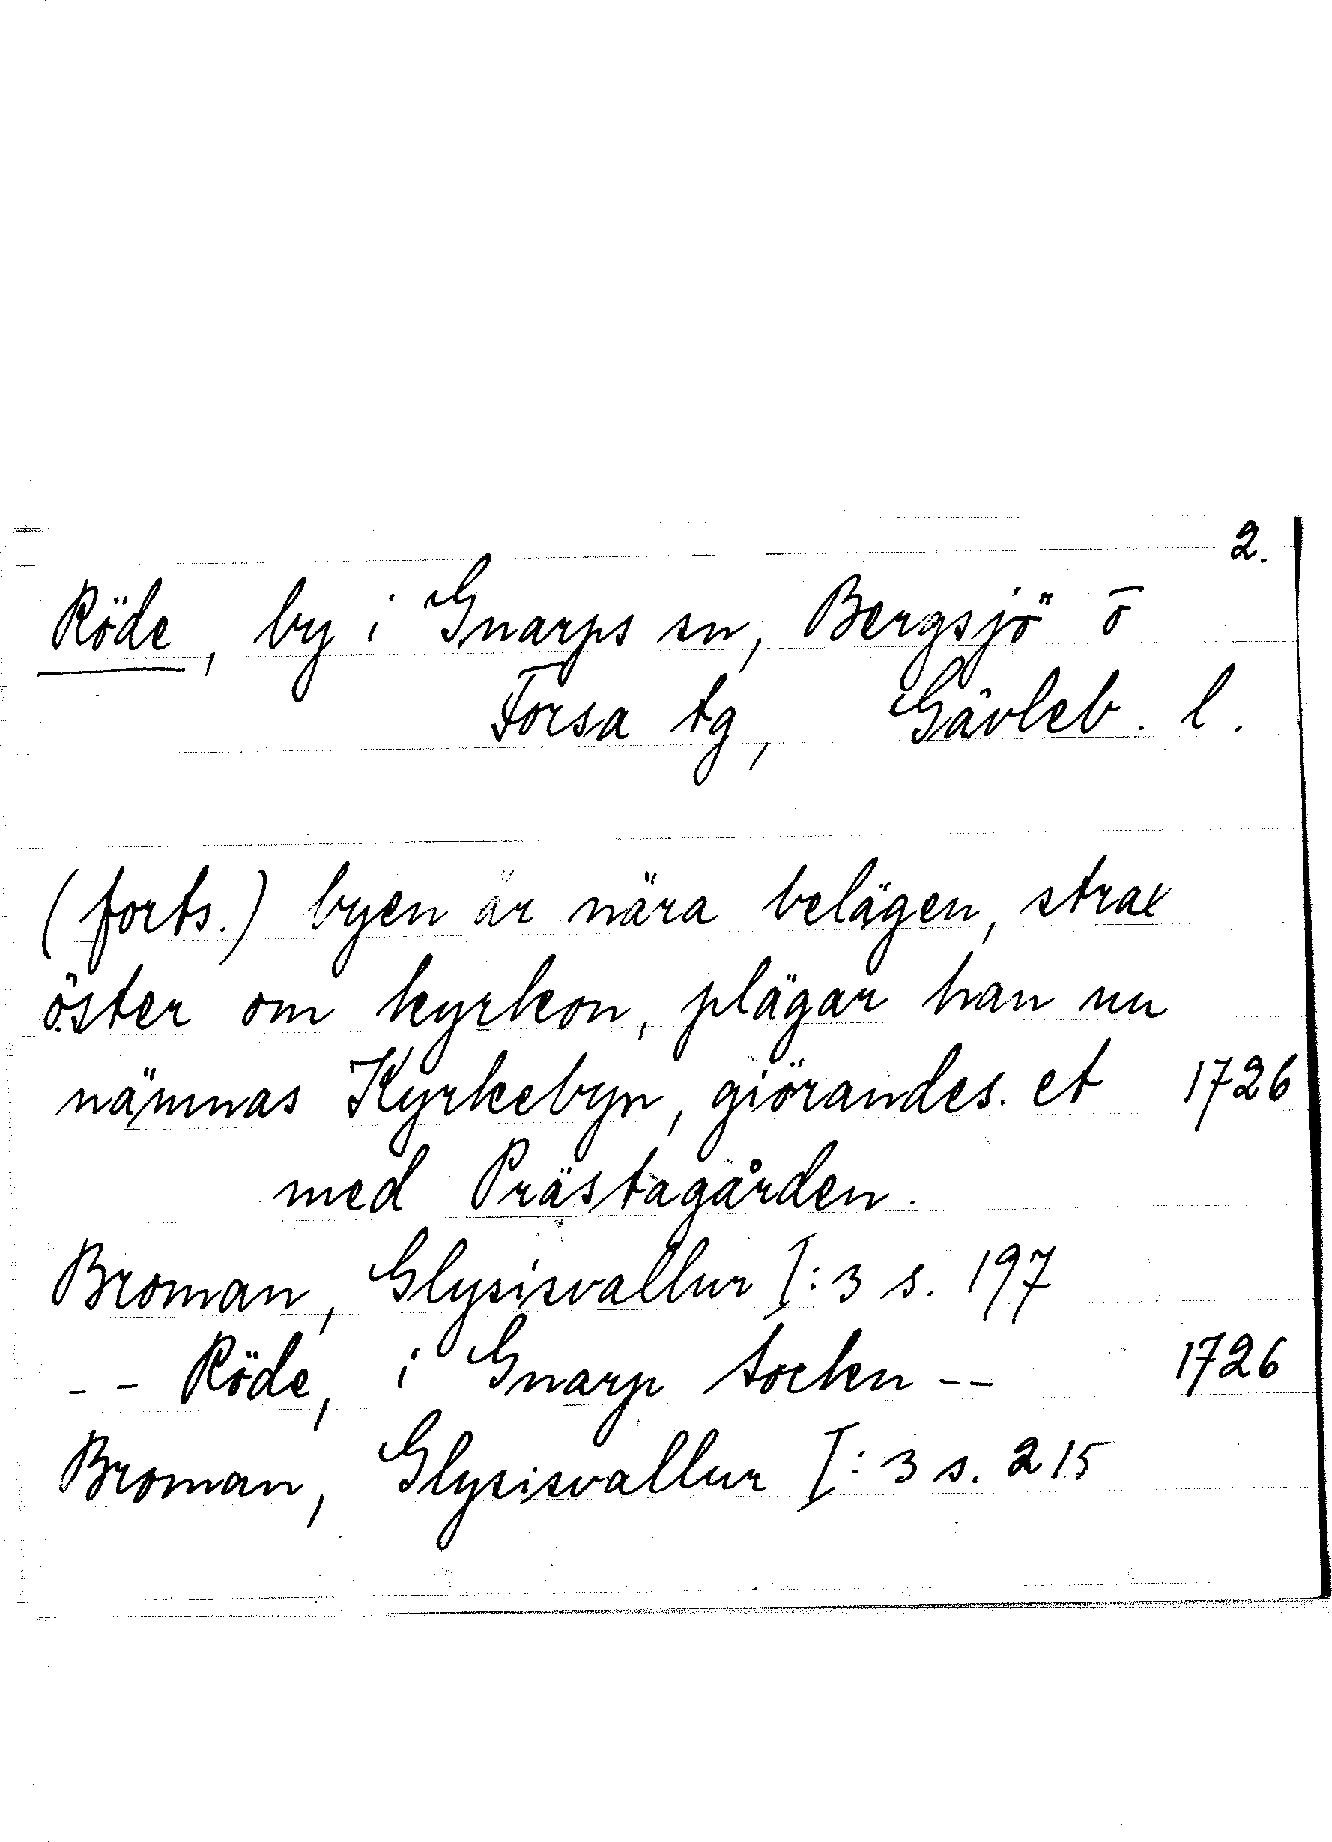 2.
Röde, by i Gnarps sn, Bergsjö o
Forsa tg, Gävleb. l.
(forts.) byen är nära belägen, strax
öster om kyrkon, plägar han nu
nämnas Kyrkebyn, giörandes. et 1726
med Prästagården.
Broman, Glysisvallur I:3 s. 197
-- Röde, i Gnarp Sockn -- 1726
Broman, Glysisvallur I:3 s. 215